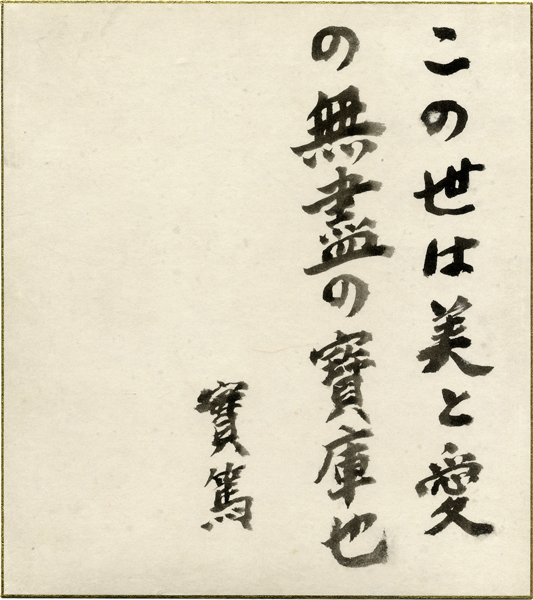 この世は美と愛
の無盡の寶庫也
實篤